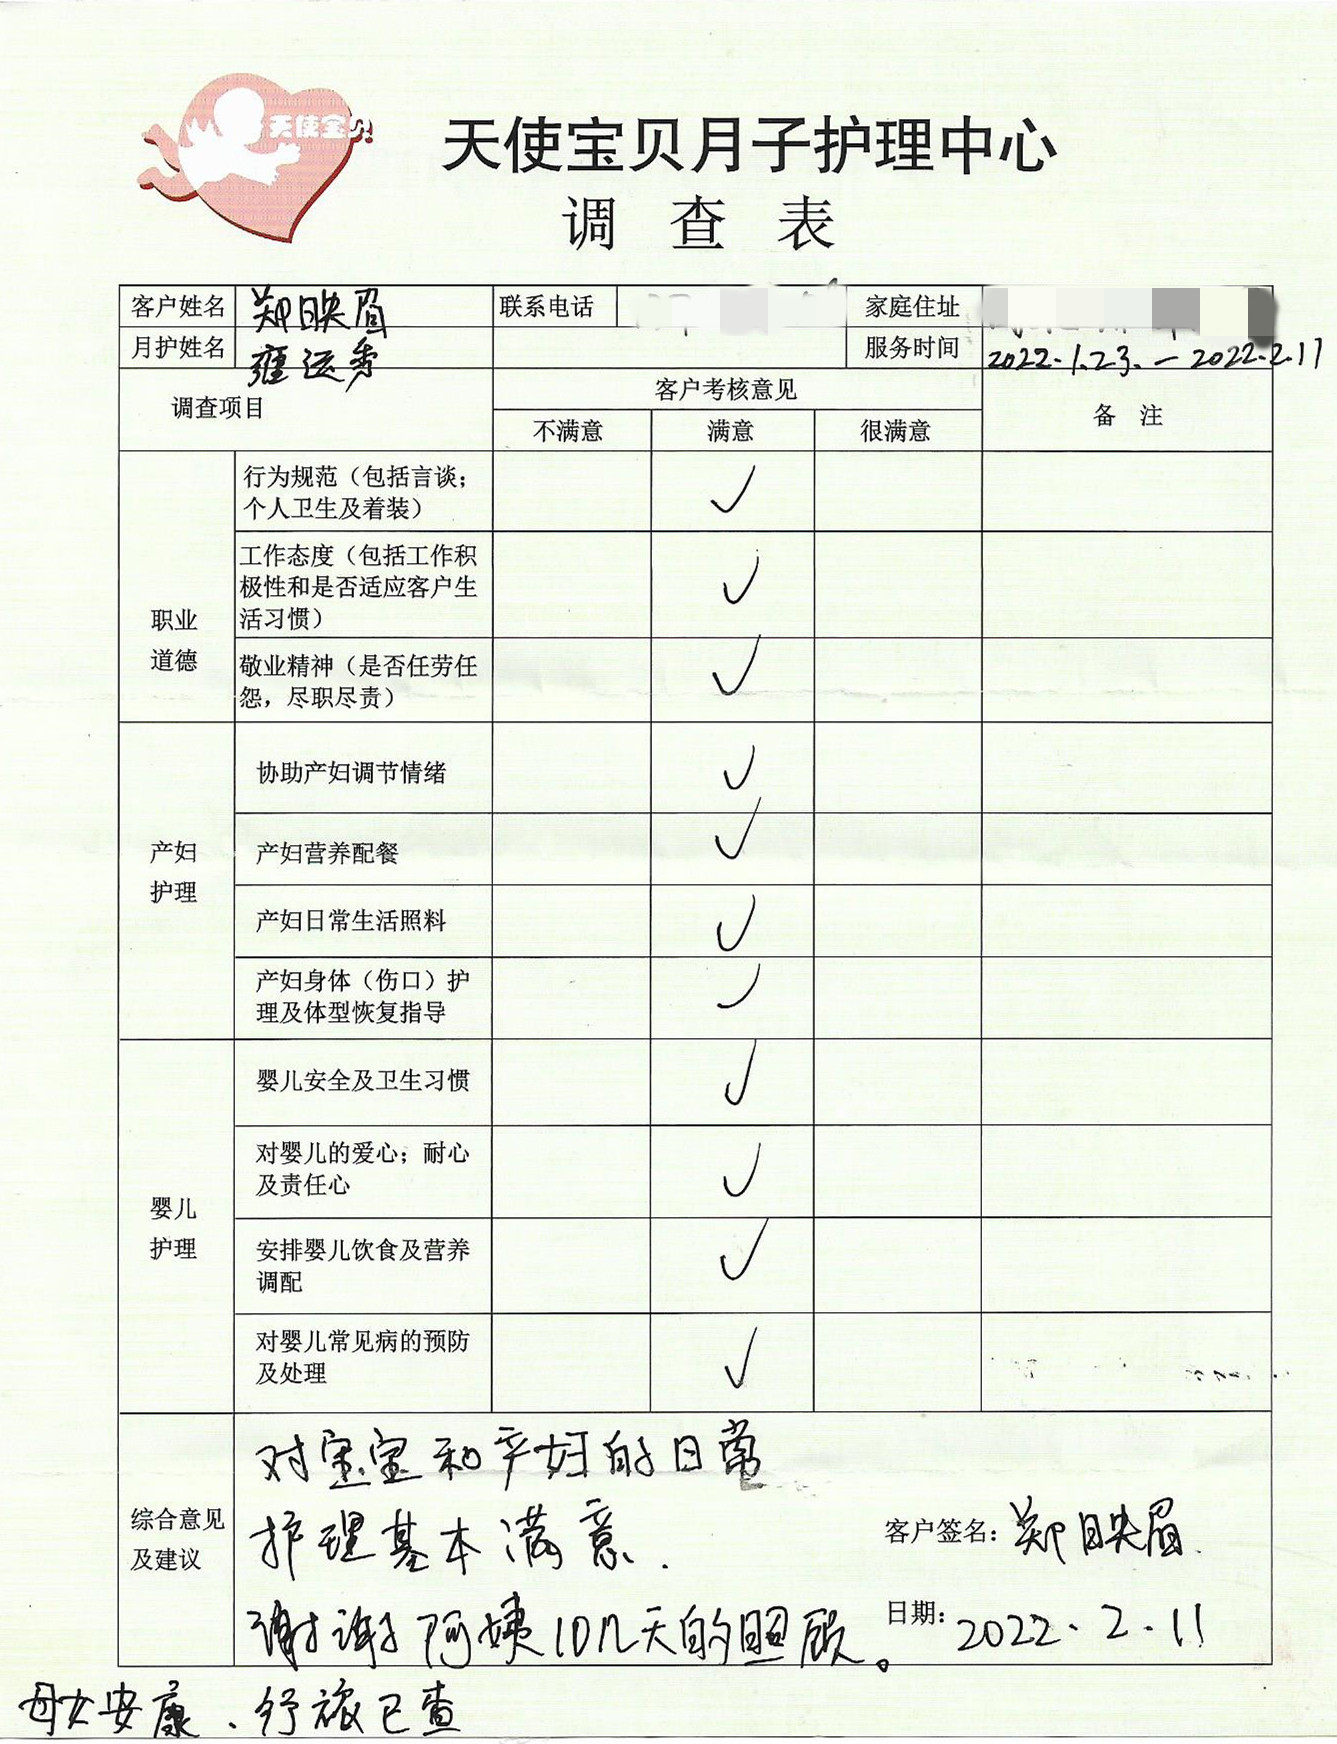 天使宝贝
天使宝贝月子护理中心
调 查 表
客户姓名 郑映眉 联系电话 家庭住址
月护姓名 雍运秀 服务时间 2022.1.23.—2022.2.11
调查项目 客户考核意见 备 注
不满意 满意 很满意
职业
道德
行为规范（包括言谈；
个人卫生及着装） ✓
工作态度（包括工作积
极性和是否适应客户生
活习惯） ✓
敬业精神（是否任劳任
怨，尽职尽责） ✓
产妇
护理
协助产妇调节情绪 ✓
产妇营养配餐 ✓
产妇日常生活照料 ✓
产妇身体（伤口）护
理及体型恢复指导 ✓
婴儿
护理
婴儿安全及卫生习惯 ✓
对婴儿的爱心；耐心
及责任心 ✓
安排婴儿饮食及营养
调配 ✓
对婴儿常见病的预防
及处理 ✓
综合意见
及建议
对宝宝和产妇的日常
护理基本满意.
谢谢阿姨10几天的照顾。
客户签名：郑映眉.
日期：2022.2.11
母女安康、行旅已查